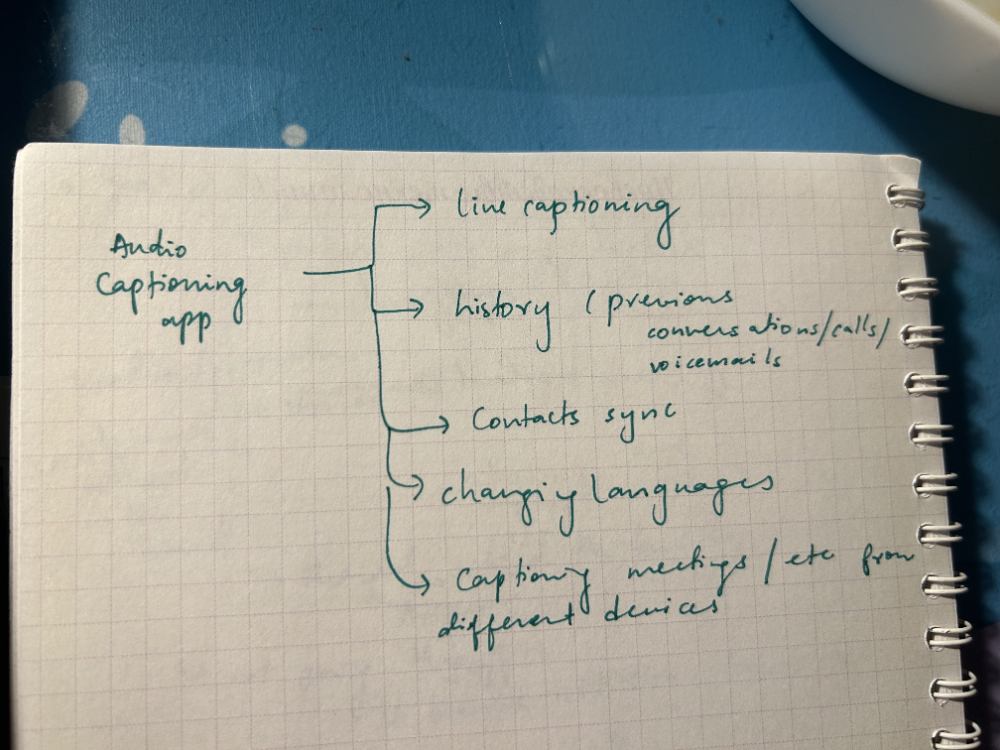 Audio
Captioning
app
live captioning
history (previous
conversations/calls/
voicemails
Contacts sync
changing languages
Captioning meetings/etc from
different devices